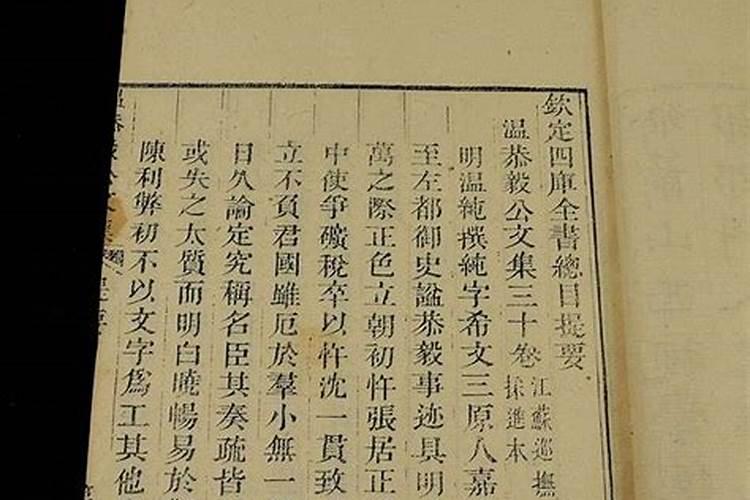 欽定四庫全書總目提要
温恭毅公文集三十卷
江蘇巡撫
採進本
明温純撰純字希文三原人嘉
至左都御史諡恭毅事迹具明
萬之際正色立朝初忤張居正
中使爭礦稅卒以忤沈一貫致
立不負君國雖厄於羣小無一
日久論定究稱名臣其奏疏皆
或失之太質而明白曉暢易於
陳利弊初不以文字爲工其他